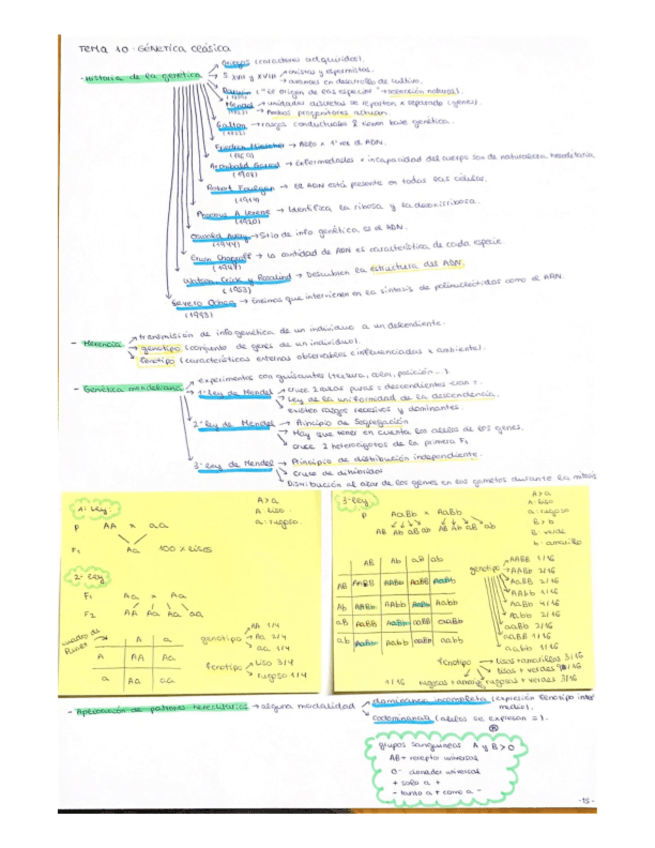 TEMA 10: GÉNETICA CLÁSICA
- Historia de la genética
Griegos (caracteres adquiridos).
S. XVII y XVIII → ovistas y espermistas.
→ avances en desarrollo de cultivo.
Darwin ("El origen de las especies" → selección natural)
Mendel → unidades discretas se reparten x separado (genes).
→ Ambos progenitores actúan.
Galton → rasgos conductuales q tienen base genética.
Friedrich Miescher → Aisló x 1ª vez el ADN.
Archibald Garrod → Enfermedades x incapacidad del cuerpo son de naturaleza hereditaria
(1908)
Robert Feulgen → El ADN está presente en todas las células.
(1914)
Phoebus A Levene → Identifica la ribosa y la desoxirribosa.
(1920)
Oswald Avery → Sitio de info genética es el ADN.
(1944)
Erwin Chargaff → La cantidad de ADN es característica de cada especie
(1948)
Watson, Crick y Rosalind → Descubren la estructura del ADN.
(1953)
Severo Ochoa → Enzimas que intervienen en la síntesis de polinucleótidos como el ARN.
(1993)
- Herencia
transmisión de info genética de un individuo a un descendiente.
genotipo (conjunto de genes de un individuo).
fenotipo (características externas observables e influenciadas x ambiente).
- Genética mendeliana
experimentos con guisantes (textura, color, posición ...).
1ª ley de Mendel → cruce 2 razas puras = descendientes =.
Ley de la uniformidad de la descendencia.
existen rasgos recesivos y dominantes.
2ª ley de Mendel → Principio de Segregación
→ Hay que tener en cuenta los alelos de los genes.
cruce 2 heterocigotos de la primera F1
3ª ley de Mendel → Principio de distribución independiente.
→ cruce de dihíbridos
Distribución al azar de los genes en los gametos durante la mitosis
1ª ley:
A > a
A: liso.
a: rugoso.
P AA x aa
F1 Aa 100% lisos
2ª ley
F1 Aa x Aa
F2 AA Aa Aa aa
cuadro de Punnet
A a
A AA Aa
a Aa aa
genotipo AA 1/4
Aa 2/4
aa 1/4
fenotipo liso 3/4
rugoso 1/4
3ª ley
A > a
A: liso
a: rugoso
B > b
B: verde
b: amarillo
P AaBb x AaBb
AB Ab aB ab AB Ab aB ab
AB Ab aB ab
AB AABB AABb AaBB AaBb
Ab AABb AAbb AaBb Aabb
aB AaBB AaBb aaBB aaBb
ab AaBb Aabb aaBb aabb
genotipo AABB 1/16
AABb 2/16
AaBB 2/16
AAbb 1/16
AaBb 4/16
Aabb 2/16
aaBb 2/16
aaBB 1/16
aabb 1/16
fenotipo → lisos + amarillos 3/16
lisos + verdes 9/16
1/16 rugosos + amar. rugosos + verdes 3/16
- Aplicación de patrones hereditarios → alguna modalidad
dominancia incompleta (expresión fenotipo intermedio).
codominancia (alelos se expresan =).
grupos sanguíneos A y B > 0
AB+ receptor universal
0- donador universal
+ solo a +
- tanto a + como a -
-15-